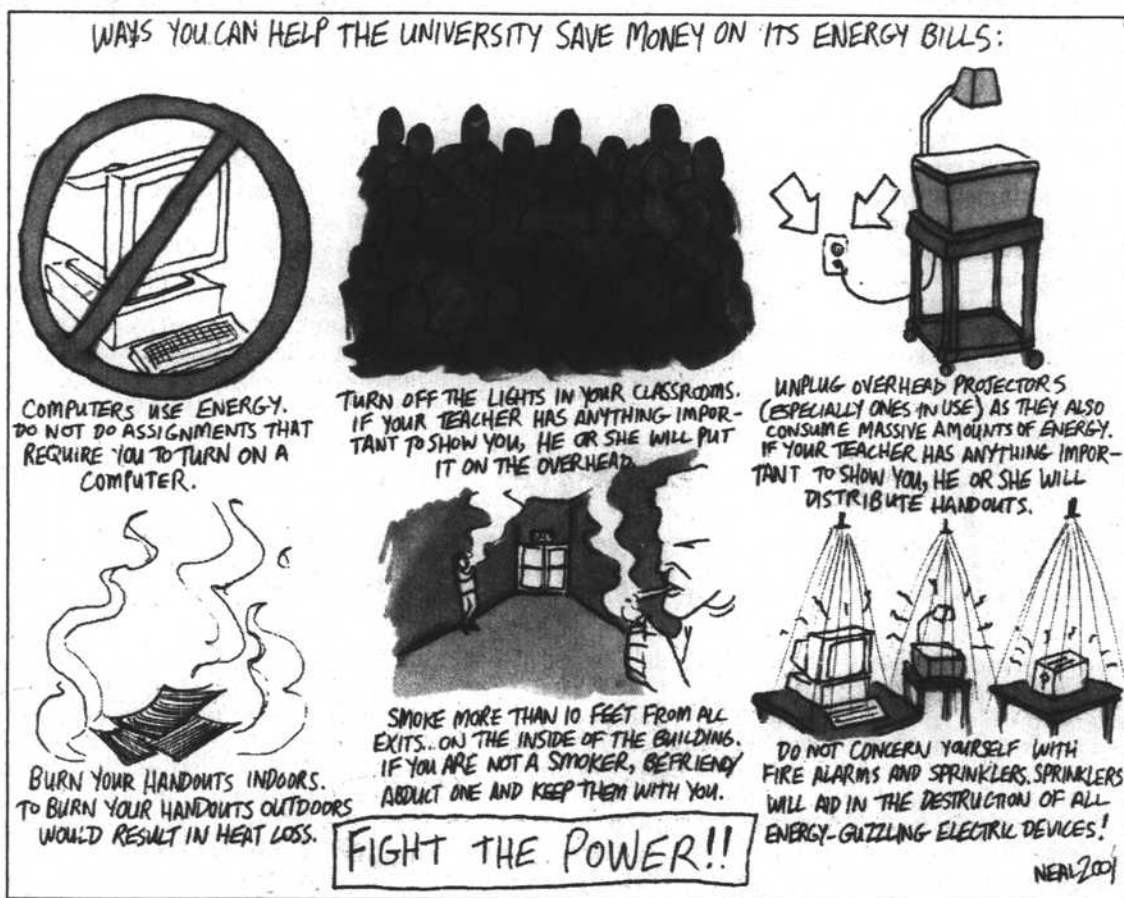 WAYS YOU CAN HELP THE UNIVERSITY SAVE MONEY ON ITS ENERGY BILLS:
COMPUTERS USE ENERGY.
DO NOT DO ASSIGNMENTS THAT
REQUIRE YOU TO TURN ON A
COMPUTER.
TURN OFF THE LIGHTS IN YOUR CLASSROOMS.
IF YOUR TEACHER HAS ANYTHING IMPOR-
TANT TO SHOW YOU, HE OR SHE WILL PUT
IT ON THE OVERHEAD.
UNPLUG OVERHEAD PROJECTORS
(ESPECIALLY ONES IN USE) AS THEY ALSO
CONSUME MASSIVE AMOUNTS OF ENERGY.
IF YOUR TEACHER HAS ANYTHING IMPOR-
TANT TO SHOW YOU, HE OR SHE WILL
DISTRIBUTE HANDOUTS.
BURN YOUR HANDOUTS INDOORS.
TO BURN YOUR HANDOUTS OUTDOORS
WOULD RESULT IN HEAT LOSS.
SMOKE MORE THAN 10 FEET FROM ALL
EXITS...ON THE INSIDE OF THE BUILDING.
IF YOU ARE NOT A SMOKER, BEFRIEND/
ABDUCT ONE AND KEEP THEM WITH YOU.
DO NOT CONCERN YOURSELF WITH
FIRE ALARMS AND SPRINKLERS. SPRINKLERS
WILL AID IN THE DESTRUCTION OF ALL
ENERGY-GUZZLING ELECTRIC DEVICES!
FIGHT THE POWER!!
NEAL 2001